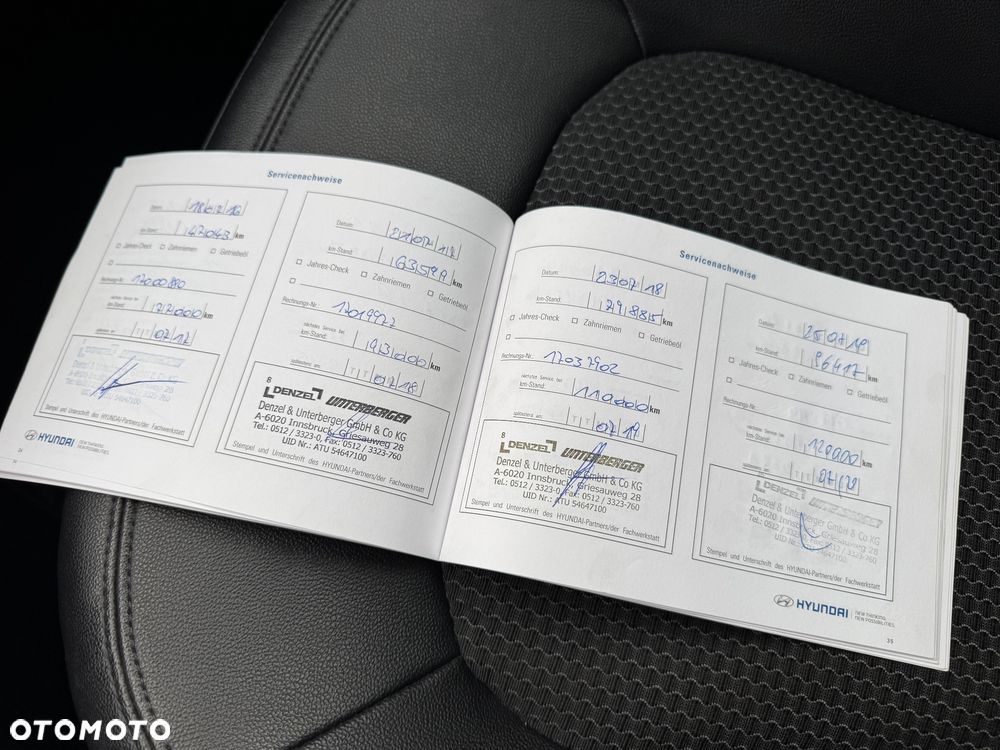 Servicenachweise
Datum:
18 07 16
47043 km
Jahres-Check Zahnriemen Getriebeöl
Rechnungs-Nr.:
nächstes Service bei
km-Stand:
77000 km
spätestens am:
07 17
Tel.: 0512 / 3323-0
Stempel und Unterschrift des HYUNDAI-Partners/der Fachwerkstatt
HYUNDAI NEW THINKING. NEW POSSIBILITIES.
Datum: 21 07 17
km-Stand: 63599 km
Jahres-Check Zahnriemen Getriebeöl
Rechnungs-Nr.: 17019977
nächstes Service bei
km-Stand: 93000 km
spätestens am: T T 07 18
8
DENZEL UNTERBERGER
Denzel & Unterberger GmbH & Co KG
A-6020 Innsbruck, Griesauweg 28
Tel.: 0512 / 3323-0, Fax: 0512 / 3323-760
UID Nr.: ATU 54647100
Stempel und Unterschrift des HYUNDAI-Partners/der Fachwerkstatt
Servicenachweise
Datum: 23 07 18
km-Stand: 79885 km
Jahres-Check Zahnriemen Getriebeöl
Rechnungs-Nr.: 17037902
nächstes Service bei
km-Stand: 110000 km
spätestens am: T T 07 19
8
DENZEL UNTERBERGER
Denzel & Unterberger GmbH & Co KG
A-6020 Innsbruck, Griesauweg 28
Tel.: 0512 / 3323-0, Fax: 0512 / 3323-760
UID Nr.: ATU 54647100
Stempel und Unterschrift des HYUNDAI-Partners/der Fachwerkstatt
Datum: 25 07 19
km-Stand: 96417 km
Jahres-Check Zahnriemen Getriebeöl
Rechnungs-Nr.:
nächstes Service bei
km-Stand: 120000 km
spätestens am:
DENZEL UNTERBERGER
Denzel & Unterberger GmbH & Co KG
A-6020 Innsbruck, Griesauweg 28
Tel.: 0512 / 3323-0, Fax: 0512 / 3323-760
UID Nr.: ATU 54647100
Stempel und Unterschrift des HYUNDAI-Partners/der Fachwerkstatt
HYUNDAI NEW THINKING. NEW POSSIBILITIES.
35
OTOMOTO